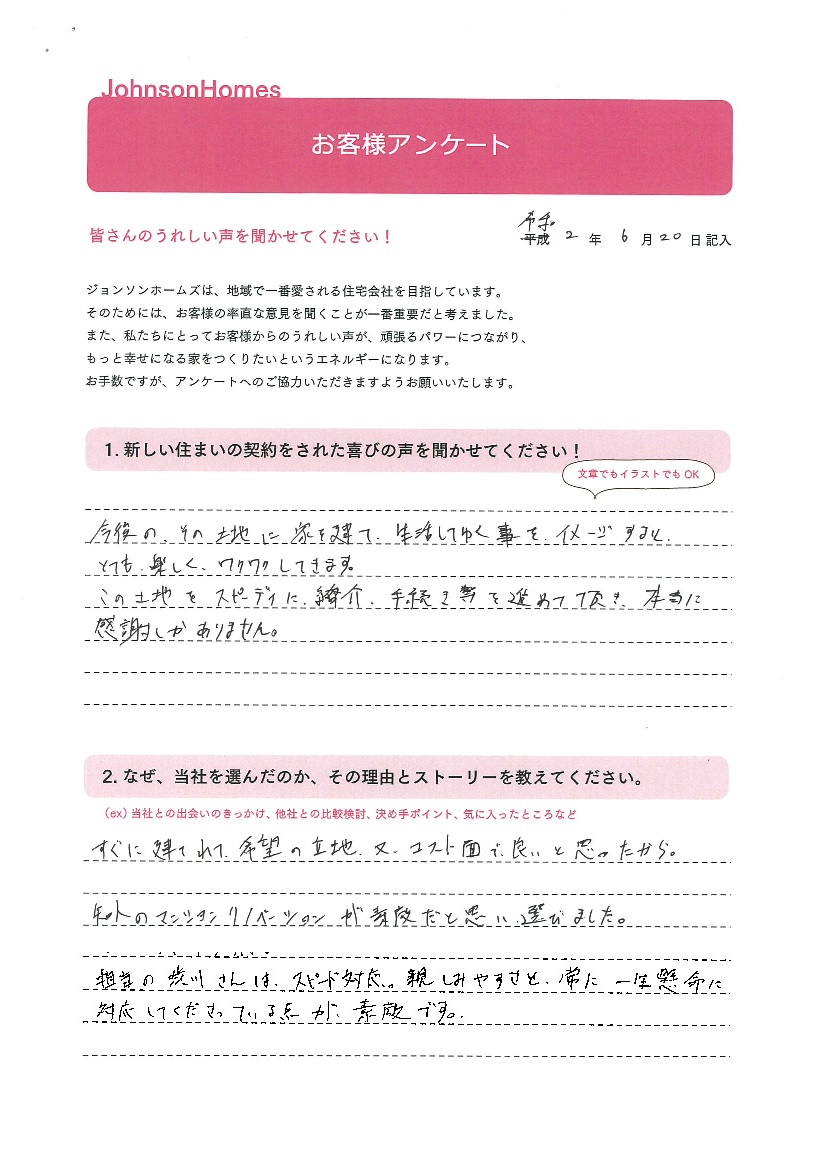 JohnsonHomes
お客様アンケート
皆さんのうれしい声を聞かせてください！
令和
平成 2 年 6 月 20 日 記入
ジョンソンホームズは、地域で一番愛される住宅会社を目指しています。
そのためには、お客様の率直な意見を聞くことが一番重要だと考えました。
また、私たちにとってお客様からのうれしい声が、頑張るパワーにつながり、
もっと幸せになる家をつくりたいというエネルギーになります。
お手数ですが、アンケートへのご協力いただきますようお願いいたします。
1. 新しい住まいの契約をされた喜びの声を聞かせてください！
文章でもイラストでもOK
今後の、その土地に家を建て、生活してゆく事を、イメージすると、
とても、楽しく、ワクワクしてきます。
この土地をスピーディに、紹介、手続き等を進めて頂き、本当に
感謝しかありません。
2. なぜ、当社を選んだのか、その理由とストーリーを教えてください。
（ex）当社との出会いのきっかけ、他社との比較検討、決め手ポイント、気に入ったところなど
すぐに建てれて、希望の立地、又、コスト面で、良いと思ったから。
のマンションリノベーションが素敵だと思い、選びました。
担当の渋川さんは、スピード対応。親しみやすさと、常に一生懸命に
対応してくださっている点が、素敵です。